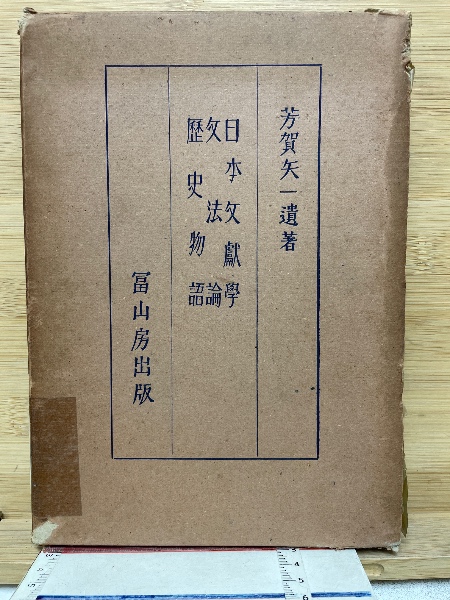 芳賀矢一遺著
日本文獻學
文法論
歷史物語
冨山房出版
3
4
5
6